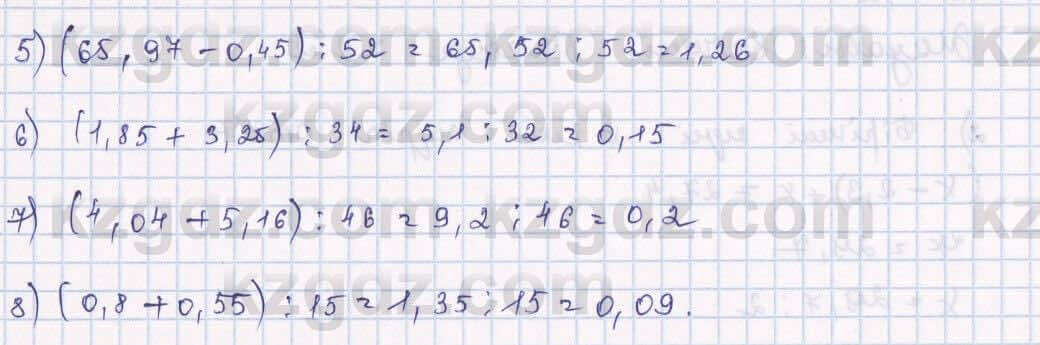 5) (65,97 - 0,45) : 52 = 65,52 : 52 = 1,26
6) (1,85 + 3,25) : 34 = 5,1 : 32 = 0,15
7) (4,04 + 5,16) : 46 = 9,2 : 46 = 0,2
8) (0,8 + 0,55) : 15 = 1,35 : 15 = 0,09.
kzgdz.com